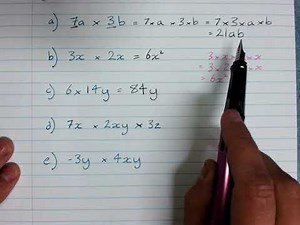 a) 7a × 3b = 7×a × 3×b = 7×3×a×b
= 21ab
b) 3x × 2x = 6x²
c) 6 × 14y = 84y
d) 7x × 2xy × 3z
e) -3y × 4xy